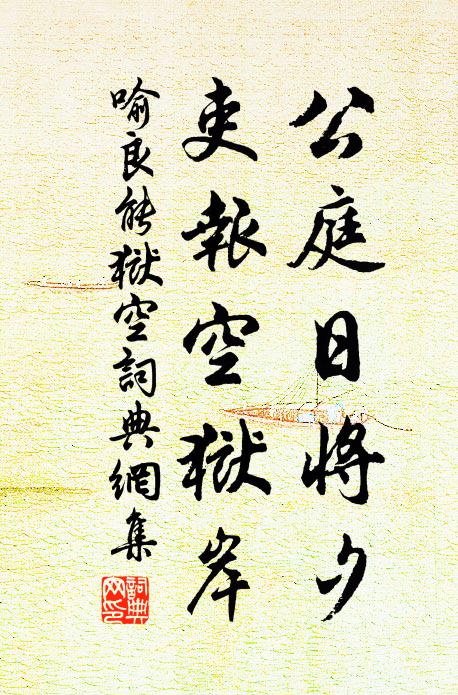 公庭日將夕
吏報空獄岸
喻良能獄空詞典網集
詞典網印